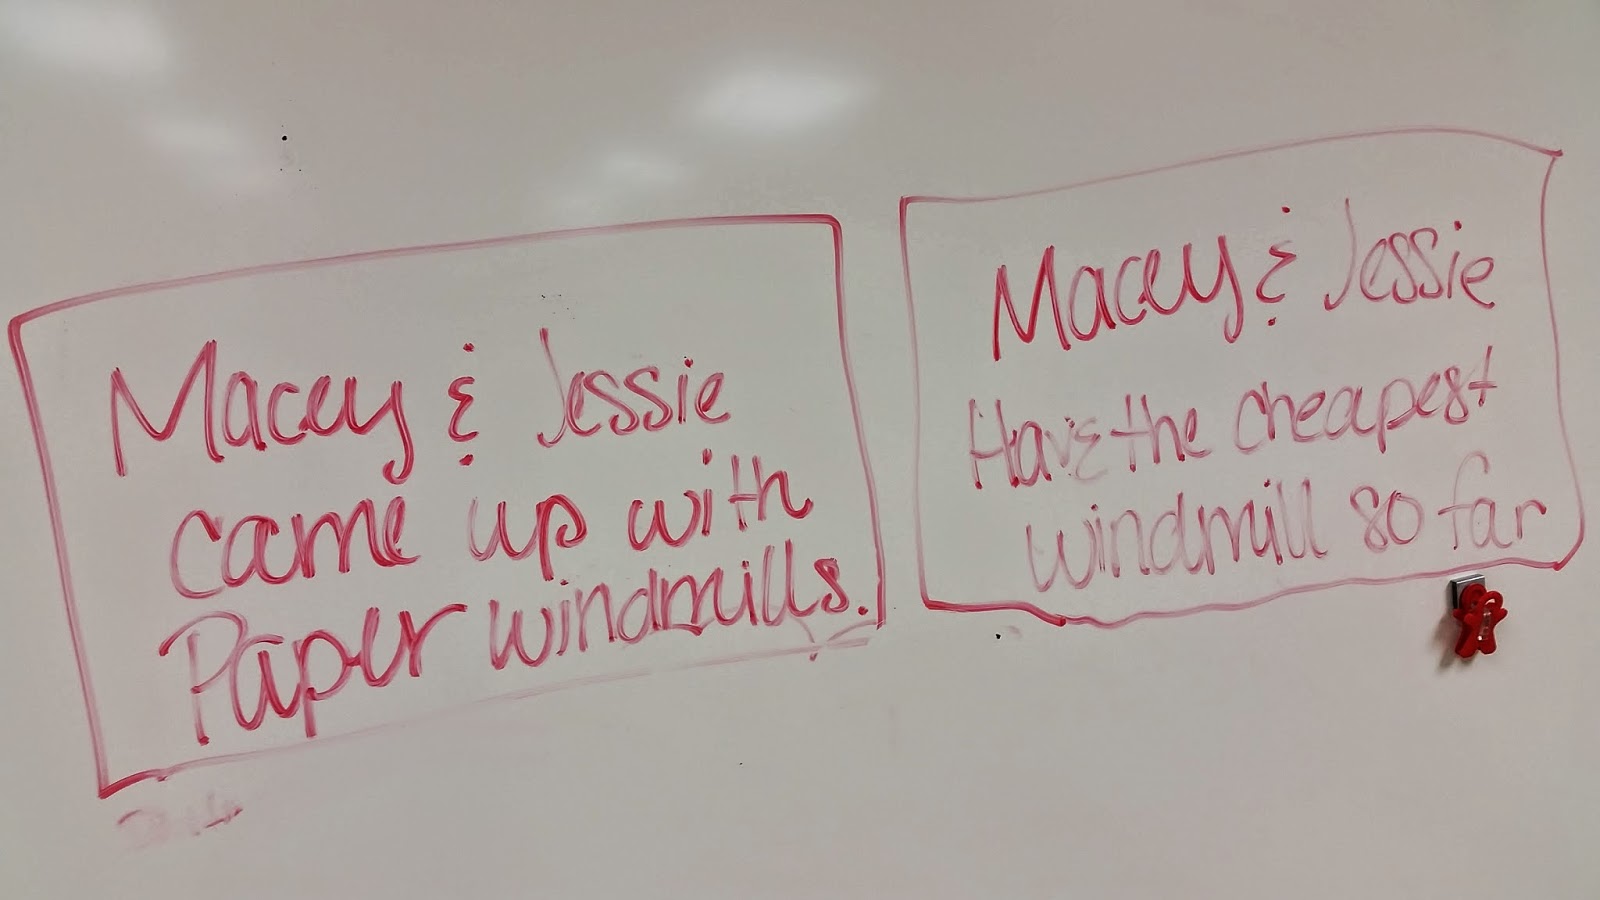 Macey & Jessie
came up with
Paper windmills.
Macey & Jessie
Have the cheapest
windmill so far